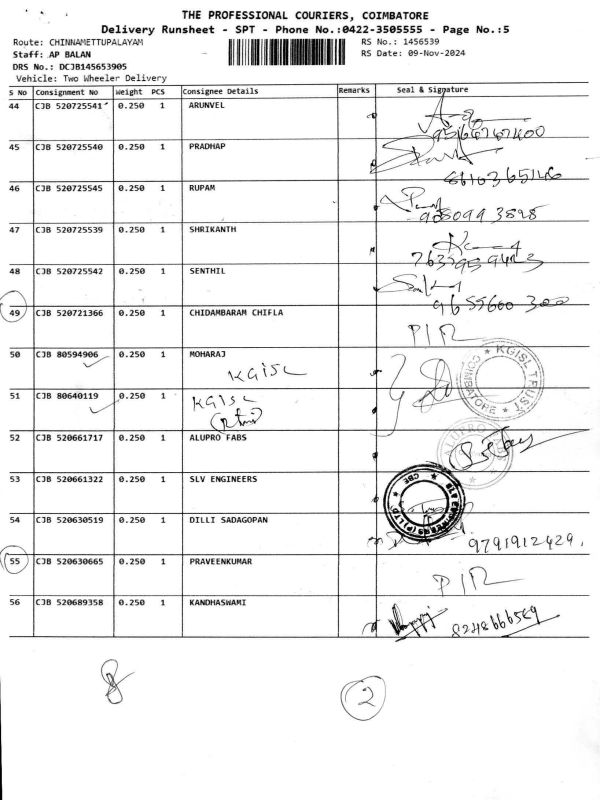 THE PROFESSIONAL COURIERS, COIMBATORE
Delivery Runsheet - SPT - Phone No.:0422-3505555 - Page No.:5
Route: CHINNAMETTUPALAYAM RS No.: 1456539
Staff: AP BALAN RS Date: 09-Nov-2024
DRS No.: DCJB145653905
Vehicle: Two Wheeler Delivery
S No Consignment No Weight PCS Consignee Details Remarks Seal & Signature
44 CJB 520725541 0.250 1 ARUNVEL
45 CJB 520725540 0.250 1 PRADHAP
8610365146
46 CJB 520725545 0.250 1 RUPAM
47 CJB 520725539 0.250 1 SHRIKANTH
48 CJB 520725542 0.250 1 SENTHIL
9655600300
49 CJB 520721366 0.250 1 CHIDAMBARAM CHIFLA
PIR
50 CJB 80594906 0.250 1 MOHARAJ
KGISL
KGISL TRUST
COIMBATORE
51 CJB 80640119 0.250 1 KGISL
52 CJB 520661717 0.250 1 ALUPRO FABS
ALUPRO
53 CJB 520661322 0.250 1 SLV ENGINEERS
CBE
54 CJB 520630519 0.250 1 DILLI SADAGOPAN
9791912429.
55 CJB 520630665 0.250 1 PRAVEENKUMAR
PIR
56 CJB 520689358 0.250 1 KANDHASWAMI
8248666569
8 2